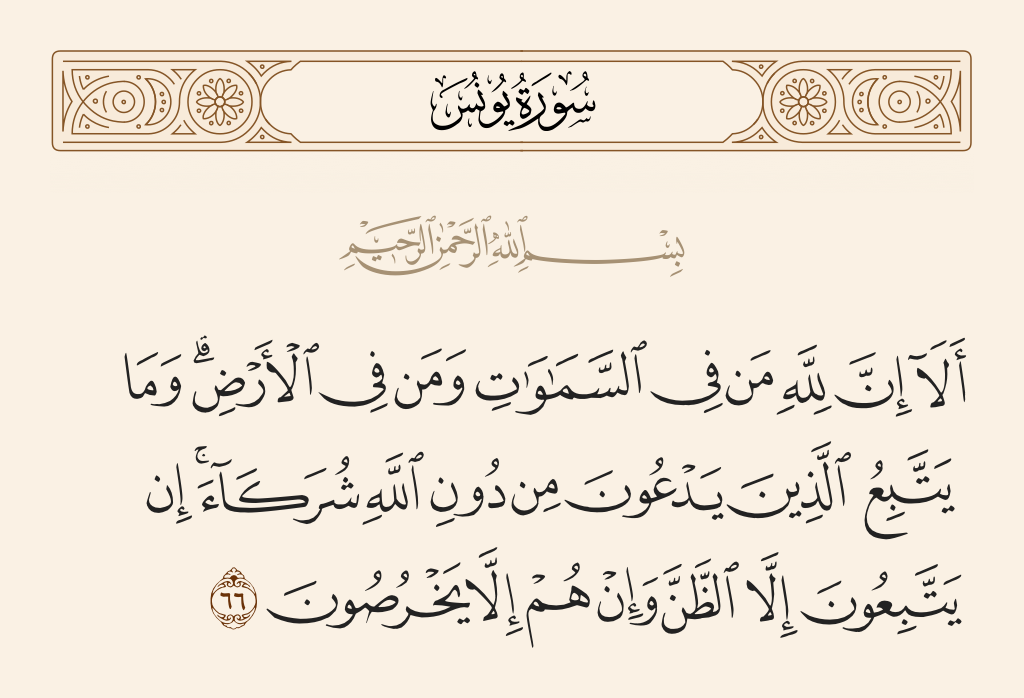 سُورَةُ يُونُسَ
بِسْمِ ٱللَّهِ ٱلرَّحْمَٰنِ ٱلرَّحِيمِ
أَلَآ إِنَّ لِلَّهِ مَن فِى ٱلسَّمَٰوَٰتِ وَمَن فِى ٱلْأَرْضِ ۗ وَمَا
يَتَّبِعُ ٱلَّذِينَ يَدْعُونَ مِن دُونِ ٱللَّهِ شُرَكَآءَ ۚ إِن
يَتَّبِعُونَ إِلَّا ٱلظَّنَّ وَإِنْ هُمْ إِلَّا يَخْرُصُونَ ٦٦